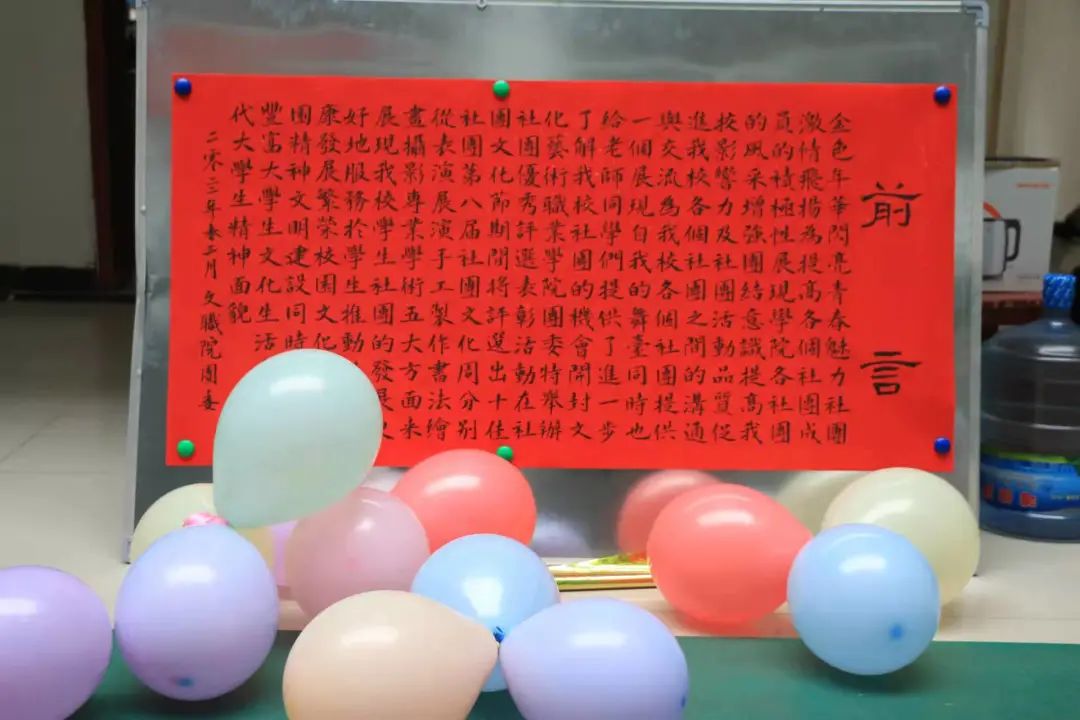 前言
金色年華閃亮青春魅力社團
激情飛揚為提高各個社團成
員的積極性展現學院各社團
的風采增強團結意識提高我
校影響力及社團活動品質促
進我校各個社團之間的溝通
與交流為我校各個社團提供
一個展現自我的舞臺同時也
給老師同學們提供了進一步
了解我校社團的機會開封文
化藝術職業學院團委特舉辦
社團優秀評選表彰活動在社
團文化節期間將評選出十佳
社團第八届社團文化周分別
從表演展演手工製作書法繪
畫攝影專業學術五大方面來
展現我校學生社團的發展
好地服務於學生推動
康發展繁榮校園文化
園精神文明建設同時
豐富大學生文化生活
代大學生精神面貌
二零二三年春三月文職院團委